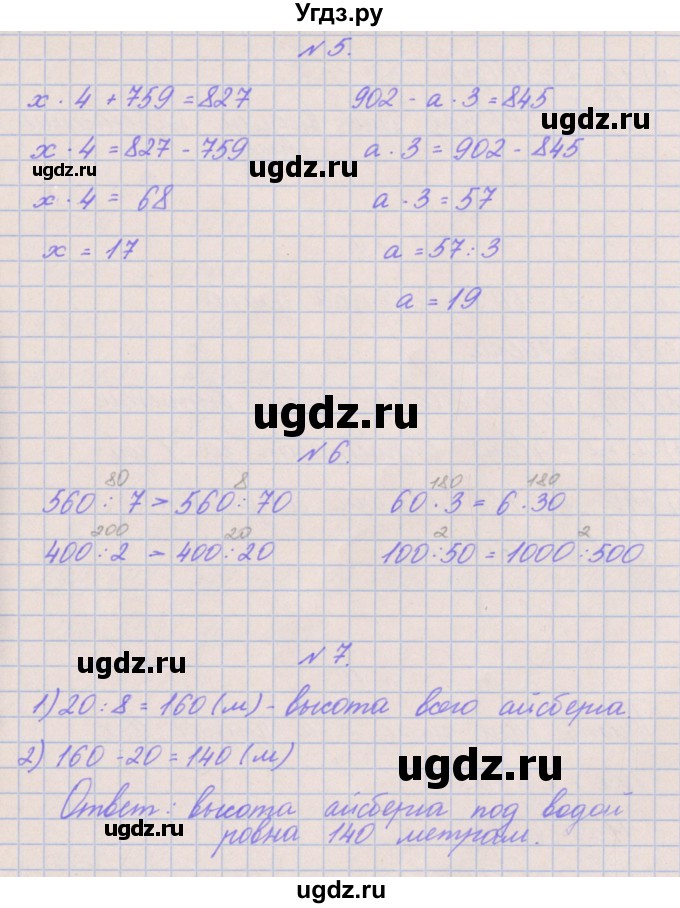 Угдз.ру
№5.
x · 4 + 759 = 827
902 - a · 3 = 845
ugdz.ru
x · 4 = 827 - 759
a · 3 = 902 - 845
ugdz.ru ugdz.ru
x · 4 = 68
a · 3 = 57
x = 17
a = 57 : 3
a = 19
ugdz.ru
№6.
80 8 180 180
560 : 7 > 560 : 70
60 · 3 = 6 · 30
200 20 2 2
400 : 2 > 400 : 20
100 : 50 = 1000 : 500
№7.
ugdz.ru
1) 20 : 8 = 160 (м) - высота всего айсберга.
2) 160 - 20 = 140 (м)
ugdz.ru
Ответ: высота айсберга под водой
ugdz.ru
ровна 140 метрам.
ugdz.ru